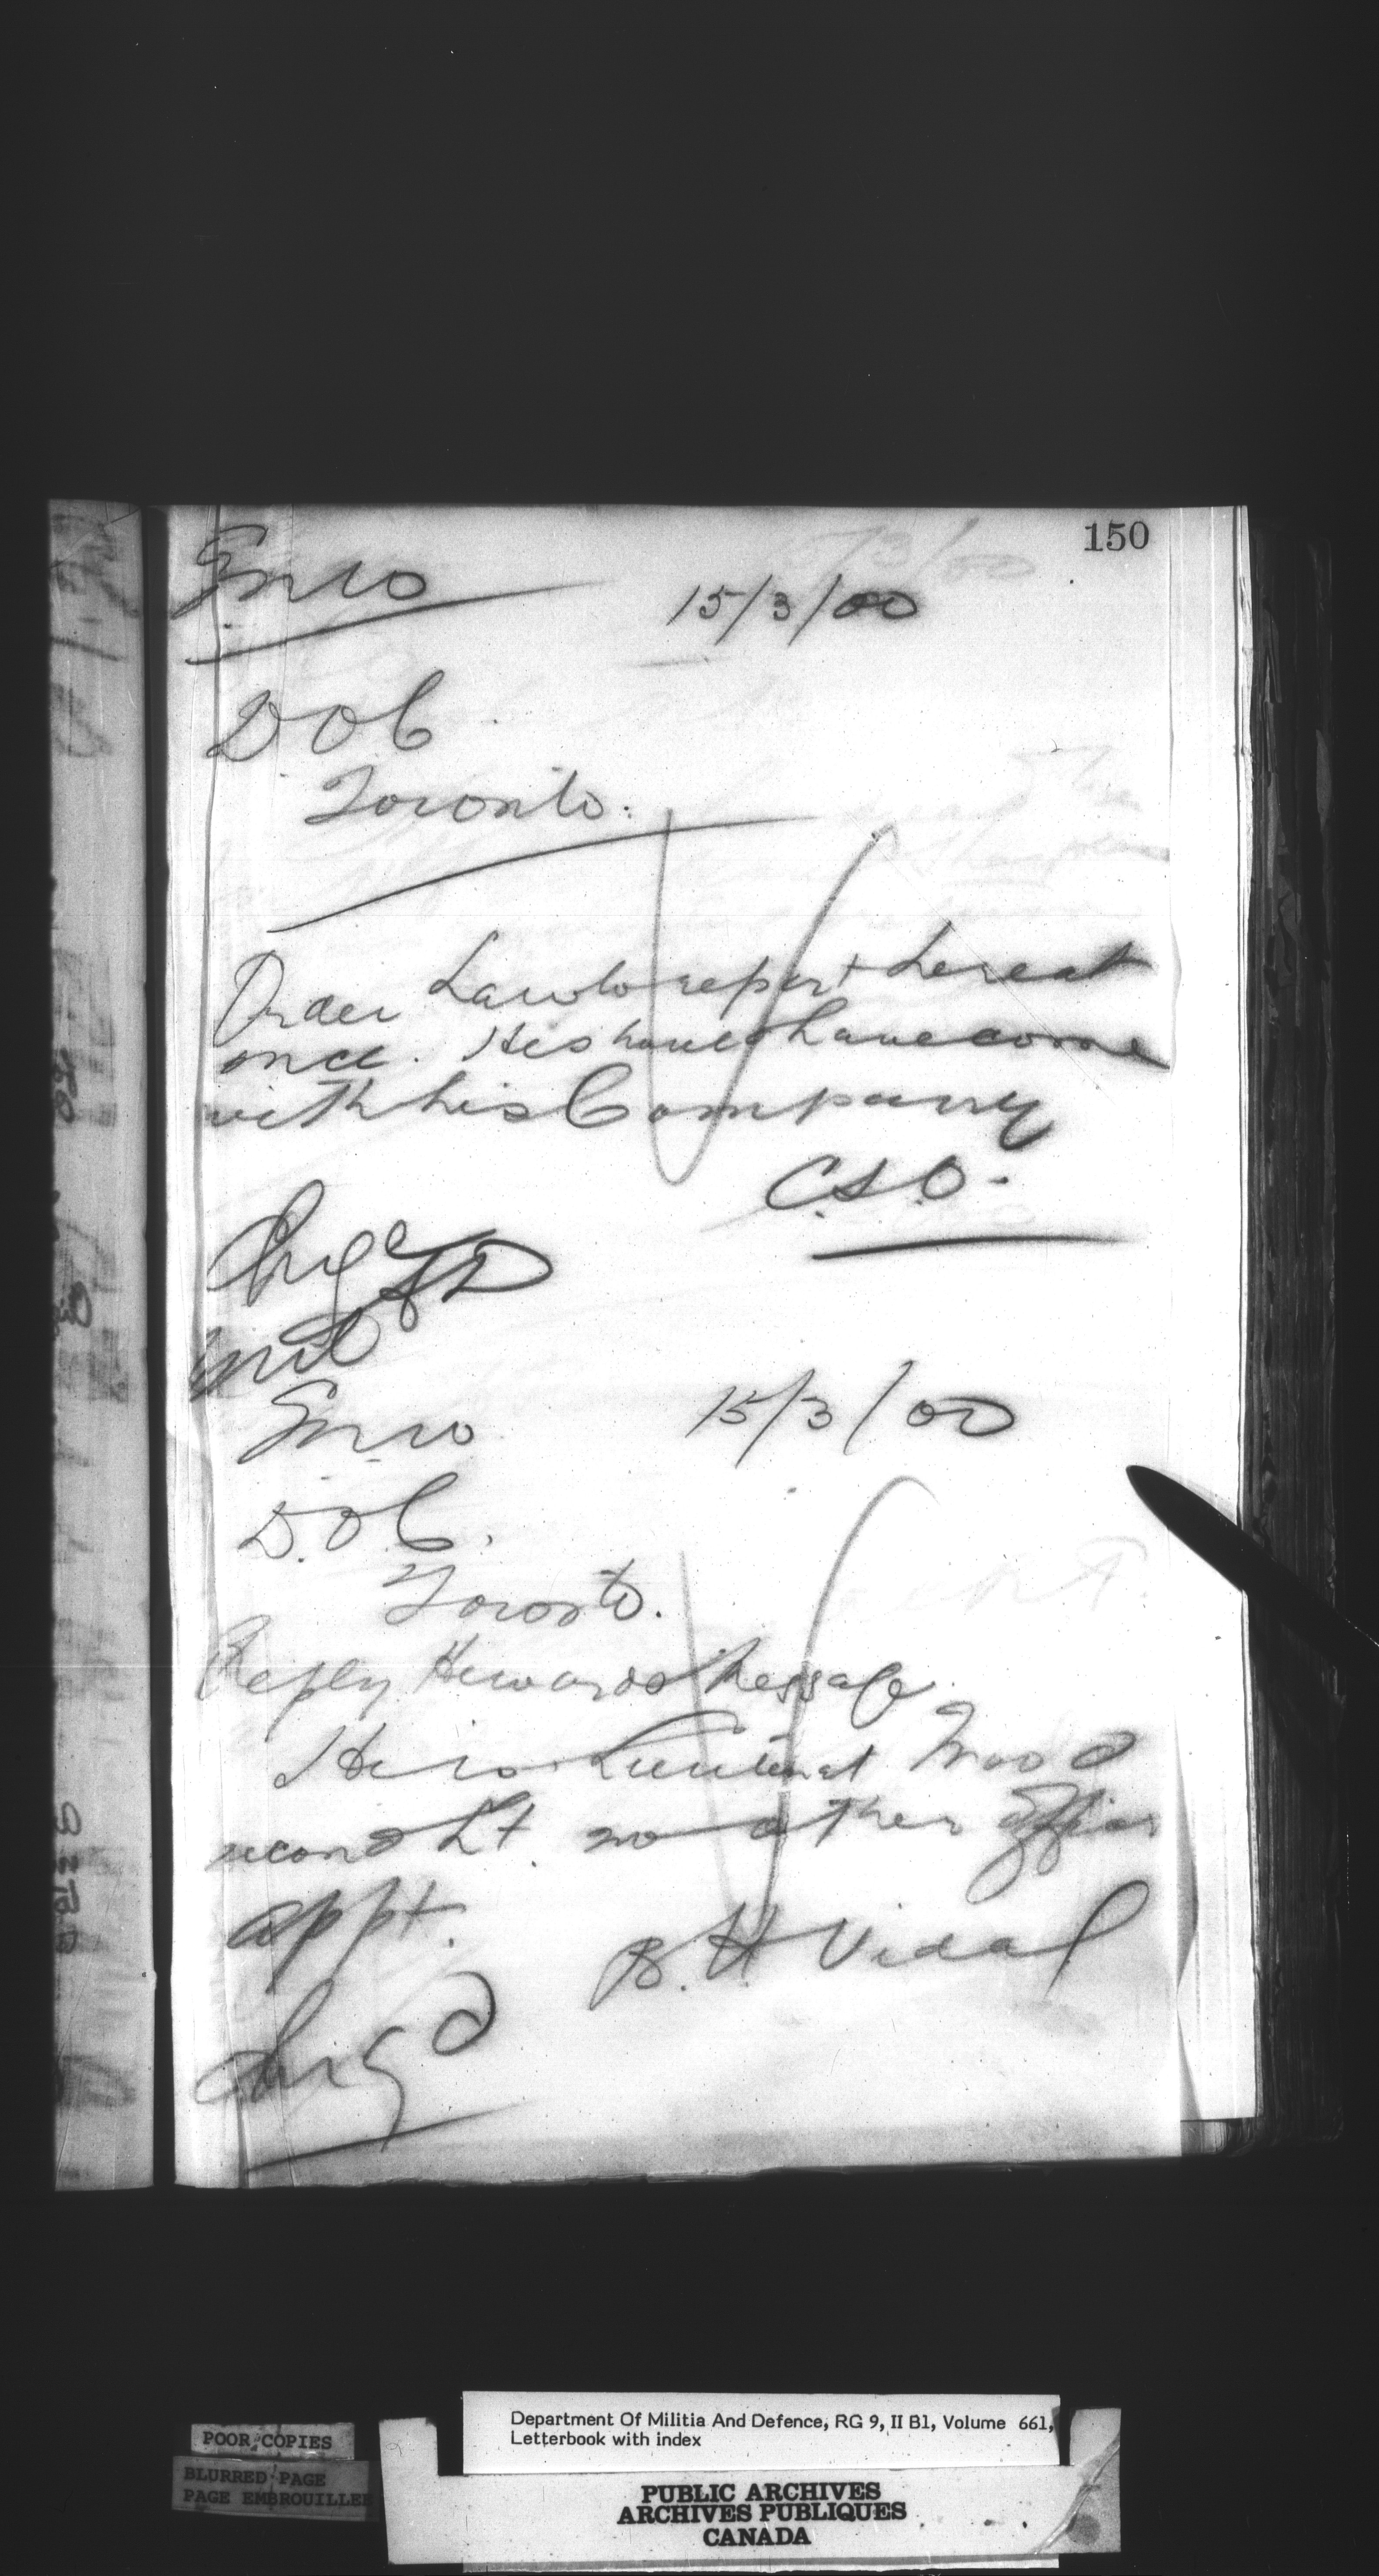 150
GNW
15/3/00
DOC
Toronto.
Order Law to report here at
once. He should have come
with his Company
C.S.O.
Chge
Mil
GNW
15/3/00
D.O.C.
Toronto.
Reply Hewards Message.
Lieutenat Wood
second Lt. no other officer
appt.
B. H Vidal
Chgd
POOR COPIES
BLURRED PAGE
PAGE EMBROUILLEE
Department Of Militia And Defence, RG 9, II B1, Volume 661,
Letterbook with index
PUBLIC ARCHIVES
ARCHIVES PUBLIQUES
CANADA